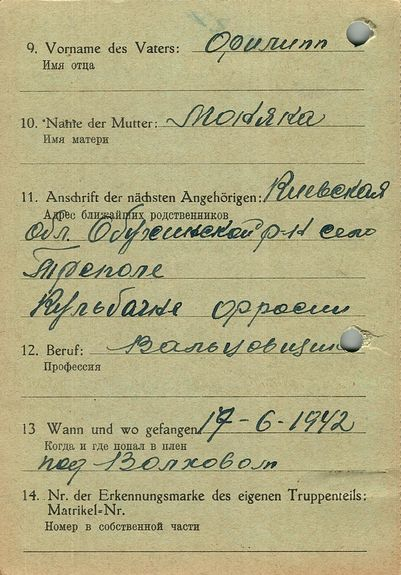 9. Vorname des Vaters: Филипп
Имя отца
10. Name der Mutter:
Имя матери
11. Anschrift der nächsten Angehörigen: Киевская
Адрес ближайших родственников
обл. Обухивской р-н село
Триполе
Кульбачке Фросии
12. Beruf: Вальцовщик
Профессия
13 Wann und wo gefangen 17-6-1942
Когда и где попал в плен
под Волховом
14. Nr. der Erkennungsmarke des eigenen Truppenteils:
Matrikel-Nr.
Номер в собственной части